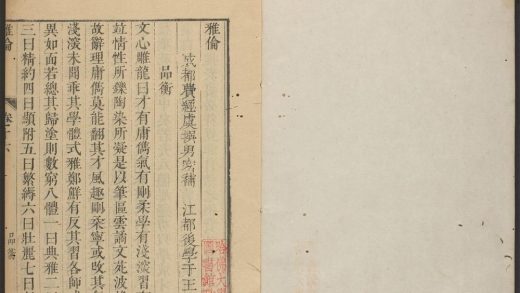 雅倫
成都費經虞撰男密補 江都後學于王
品衡
文心雕龍曰才有庸儁氣有剛柔學有淺深習有
竝情性所鑠陶染所凝是以筆區雲譎文苑波
故辭理庸儁莫能翻其才風趣剛柔寧或改其
淺深未聞乖其學體式雅鄭鮮有反其習各師
異如面若總其歸塗則數窮八體一曰典雅二
三曰精約四曰顯附五曰繁縟六曰壯麗七曰
雅倫 卷十六 品衡